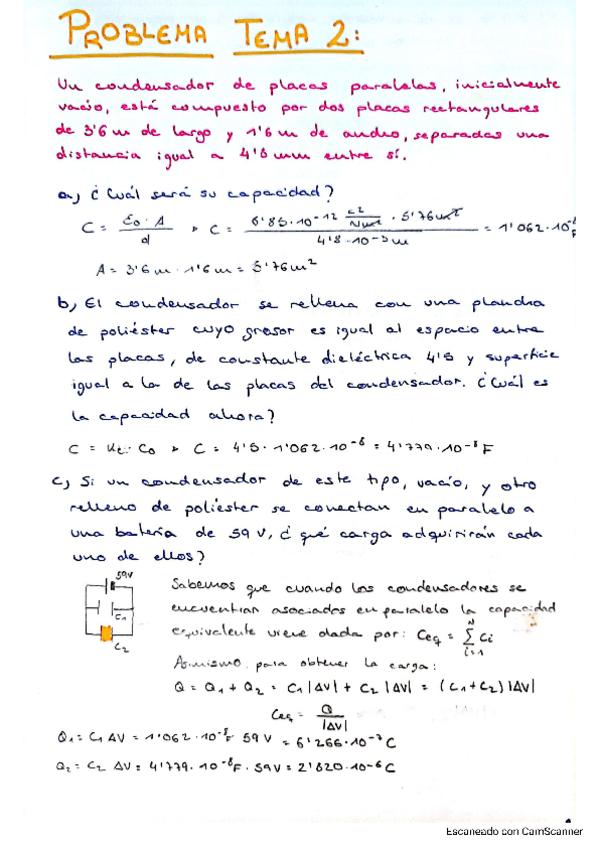 PROBLEMA TEMA 2:
Un condensador de placas paralelas, inicialmente
vacío, está compuesto por dos placas rectangulares
de 3'6 m de largo y 1'6 m de ancho, separadas una
distancia igual a 4'8 mm entre sí.
a) ¿Cuál será su capacidad?
C = ε0 · A / d → C = 8'85 · 10^-12 C2/Nm2 · 5'76m2 / 4'8 · 10^-3 m = 1'062 · 10^-8 F
A = 3'6 m · 1'6 m = 5'76 m2
b) El condensador se rellena con una plancha
de poliéster cuyo grosor es igual al espacio entre
las placas, de constante dieléctrica 4'5 y superficie
igual a la de las placas del condensador. ¿Cuál es
la capacidad ahora?
C = Kε · C0 → C = 4'5 · 1'062 · 10^-8 = 4'779 · 10^-8 F
c) Si un condensador de este tipo, vacío, y otro
relleno de poliéster se conectan en paralelo a
una batería de 59 V, ¿qué carga adquirirán cada
uno de ellos?
59V
C1
C2
Sabemos que cuando los condensadores se
encuentran asociados en paralelo la capacidad
equivalente viene dada por: Ceq = N Σ i=1 Ci
Asimismo, para obtener la carga:
Q = Q1 + Q2 = C1 |ΔV| + C2 |ΔV| = (C1 + C2) |ΔV|
Ceq = Q / |ΔV|
Q1 = C1 ΔV = 1'062 · 10^-8 F 59 V = 6'266 · 10^-7 C
Q2 = C2 ΔV = 4'779 · 10^-8 F · 59 V = 2'820 · 10^-6 C
Escaneado con CamScanner